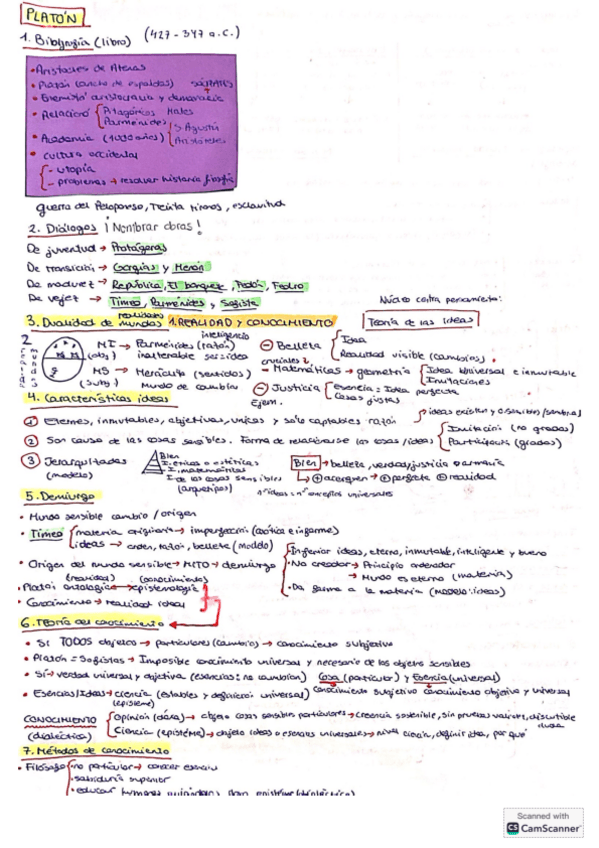 PLATÓN
1. Bibligrafía (libro) (427-347 a.C.)
• Aristocles de Atenas
• Platón (ancho de espaldas) SÓCRATES
aristocracia y democracia
• Relacionó Pitagóricos
Parménides
• Academia (1000 años) S. Agustín
Aristóteles
• cultura occidental
- utopía
- problemas → resolver historia filosofía
guerra del Peloponeso, Treinta tiranos, esclavitud
2. Diálogos ¡Nombrar obras!
De juventud → Protágoras
De transición → Gorgias y Menón
De madurez → República, El banquete, Fedón, Fedro
De vejez → Timeo, Parménides y Sofista
Núcleo contra pensamiento:
Teoría de las Ideas
3. Dualidad de mundos realidades 1. REALIDAD Y CONOCIMIENTO
2 mundos
MI → Parménides (razón) inteligencia
(obj) inalterable ser=idea
MS → Heráclito (sentidos)
(subj) Mundo de cambios
- Belleza Idea
Realidad visible (cambios)
Matemáticas → geometría Idea Universal e inmutable
Imitaciones
- Justicia Esencia = Idea perfecta
Cosas justas
Ejem.
4. Características ideas
1 Eternas, inmutables, objetivas, únicas y solo captables razón
2 Son causa de las cosas sensibles. Forma de relacionarse las cosas/ideas Imitación (no grados)
Participación (grados)
3 Jerarquizadas
(modelo)
Bien
I. éticas o estéticas
I. matemáticas
I. de las cosas sensibles
(arquetipos)
Bien → belleza, verdad, justicia o armonía
+ acerquen → + perfecto + realidad
nº ideas = nº conceptos universales
5. Demiurgo
• Mundo sensible cambio / origen
• Timeo materia originaria → imperfección (caótica e informe)
ideas → orden, razón, belleza (modelo)
• Origen del mundo sensible → MITO → demiurgo
Inferior ideas, eterno, inmutable, inteligente y bueno
• No creador → Principio ordenador
→ Mundo es eterno (materia)
• Da forma a la materia (modelo: ideas)
(realidad) (conocimiento)
• Platón ontología → epistemología
• Conocimiento → realidad ideal
6. Teoría del conocimiento
• Si TODOS objetos → particulares (cambio) → conocimiento subjetivo
• Platón = Sofistas → Imposible conocimiento universal y necesario de los objetos sensibles
• Sí → verdad universal y objetiva (esencias: no cambian) Cosa (particular) y Esencia (universal)
• Esencias/Ideas → ciencia (estables y definición universal) conocimiento subjetivo conocimiento objetivo y universal
(episteme)
CONOCIMIENTO
(dialéctica)
Opinión (dóxa) → objeto cosas sensibles particulares → creencia sostenible, sin pruebas, discutible
duda
Ciencia (epistéme) → objeto ideas o esencias universales → nivel ciencia, definir idea, por qué
7. Métodos de conocimiento
• Filósofo no particular → conocer esencia
• sabiduría superior
• educar
Scanned with
CS CamScanner